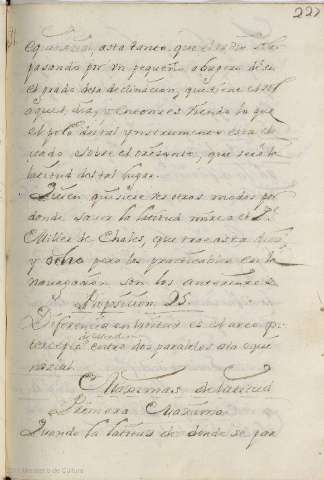 227
equinocial, asta tanto, que el rayo sol
pasando por un pequeño abugero
el grado de la declinacion, que tiene el sol
aquel dia, y entonces viendo lo que
el polo de tal ynstrumento esta ele
vado sobre el orisonte, que sera la
latitud de tal lugar.
Quien quisiere ver otros modos por
donde saver la latitud mire a el P.
Milliet de Chales, que trae asta dies
y ocho pero los practicables en la
navegacion son los anteriores
Proposicion 25.
Diferencia en latitud es el arco
tercepto de Meridiano entre dos paralelos o la equi
nocial.
Maximas de latitud
Primera Maxima
Quando la latitud de donde se par
Ministerio de Cultura